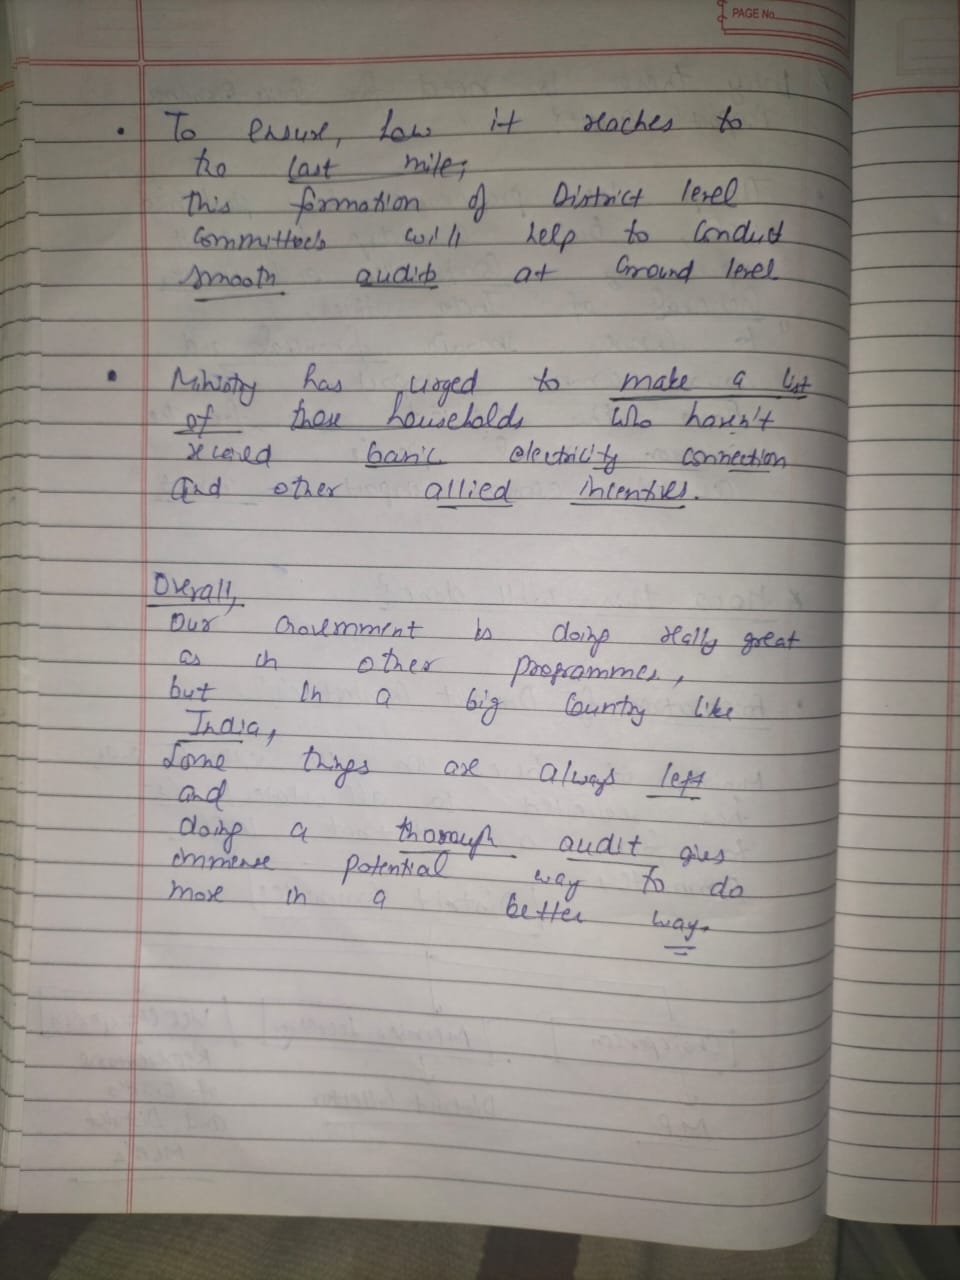 PAGE No.
• To ensure, how it reaches to
the last mile,
this formation of District level
committees will help to conduct
smooth audits at Ground level
• Ministry has urged to make a list
of those households who haven't
received basic electricity connection
and other allied incentives.
Overall,
Our Government is doing really great
as in other programmes,
but in a big country like
India,
some things are always left
and
doing a thorough audit gives
immense potential way to do
more in a better way.